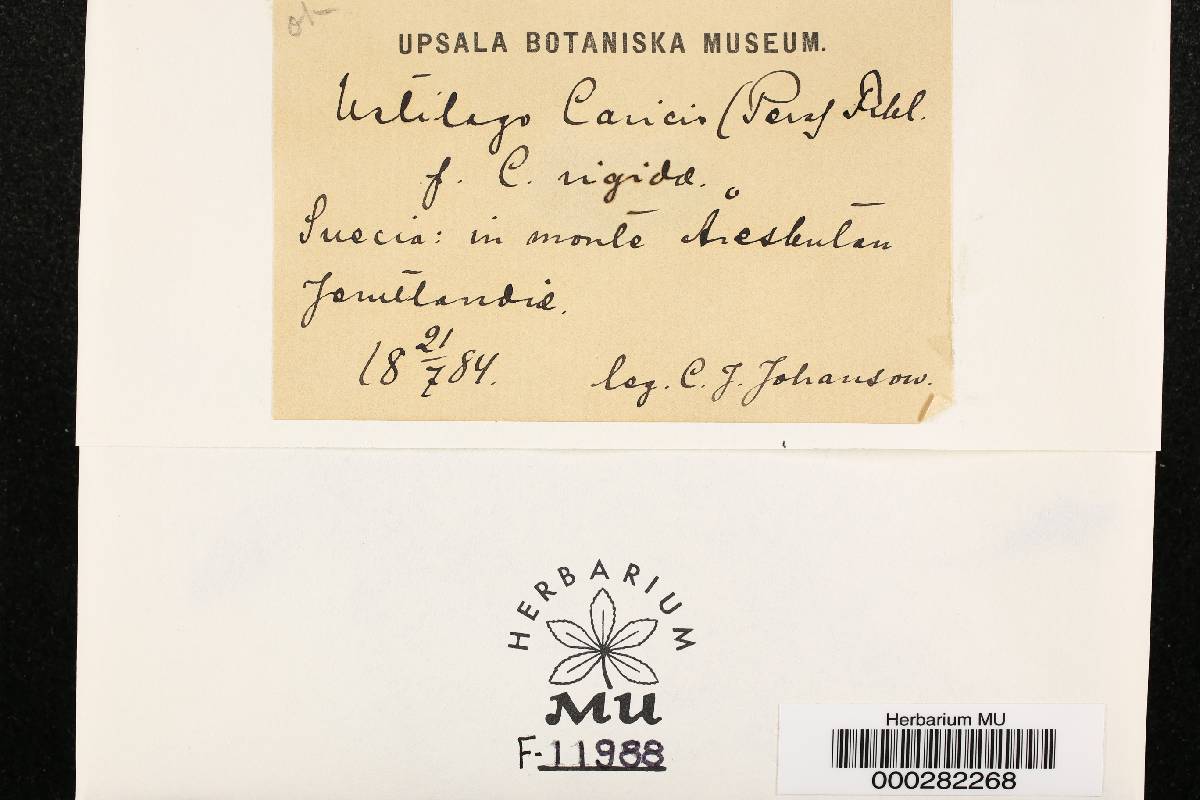 UPSALA BOTANISKA MUSEUM.
Ustilago Caricis (Pers)
f. C. rigidæ.
Suecia: in monte Åreskutan
Jemtlandiæ.
18 21/7 84. leg. C. J. Johanson.
HERBARIUM
MU
F-11988
Herbarium MU
000282268